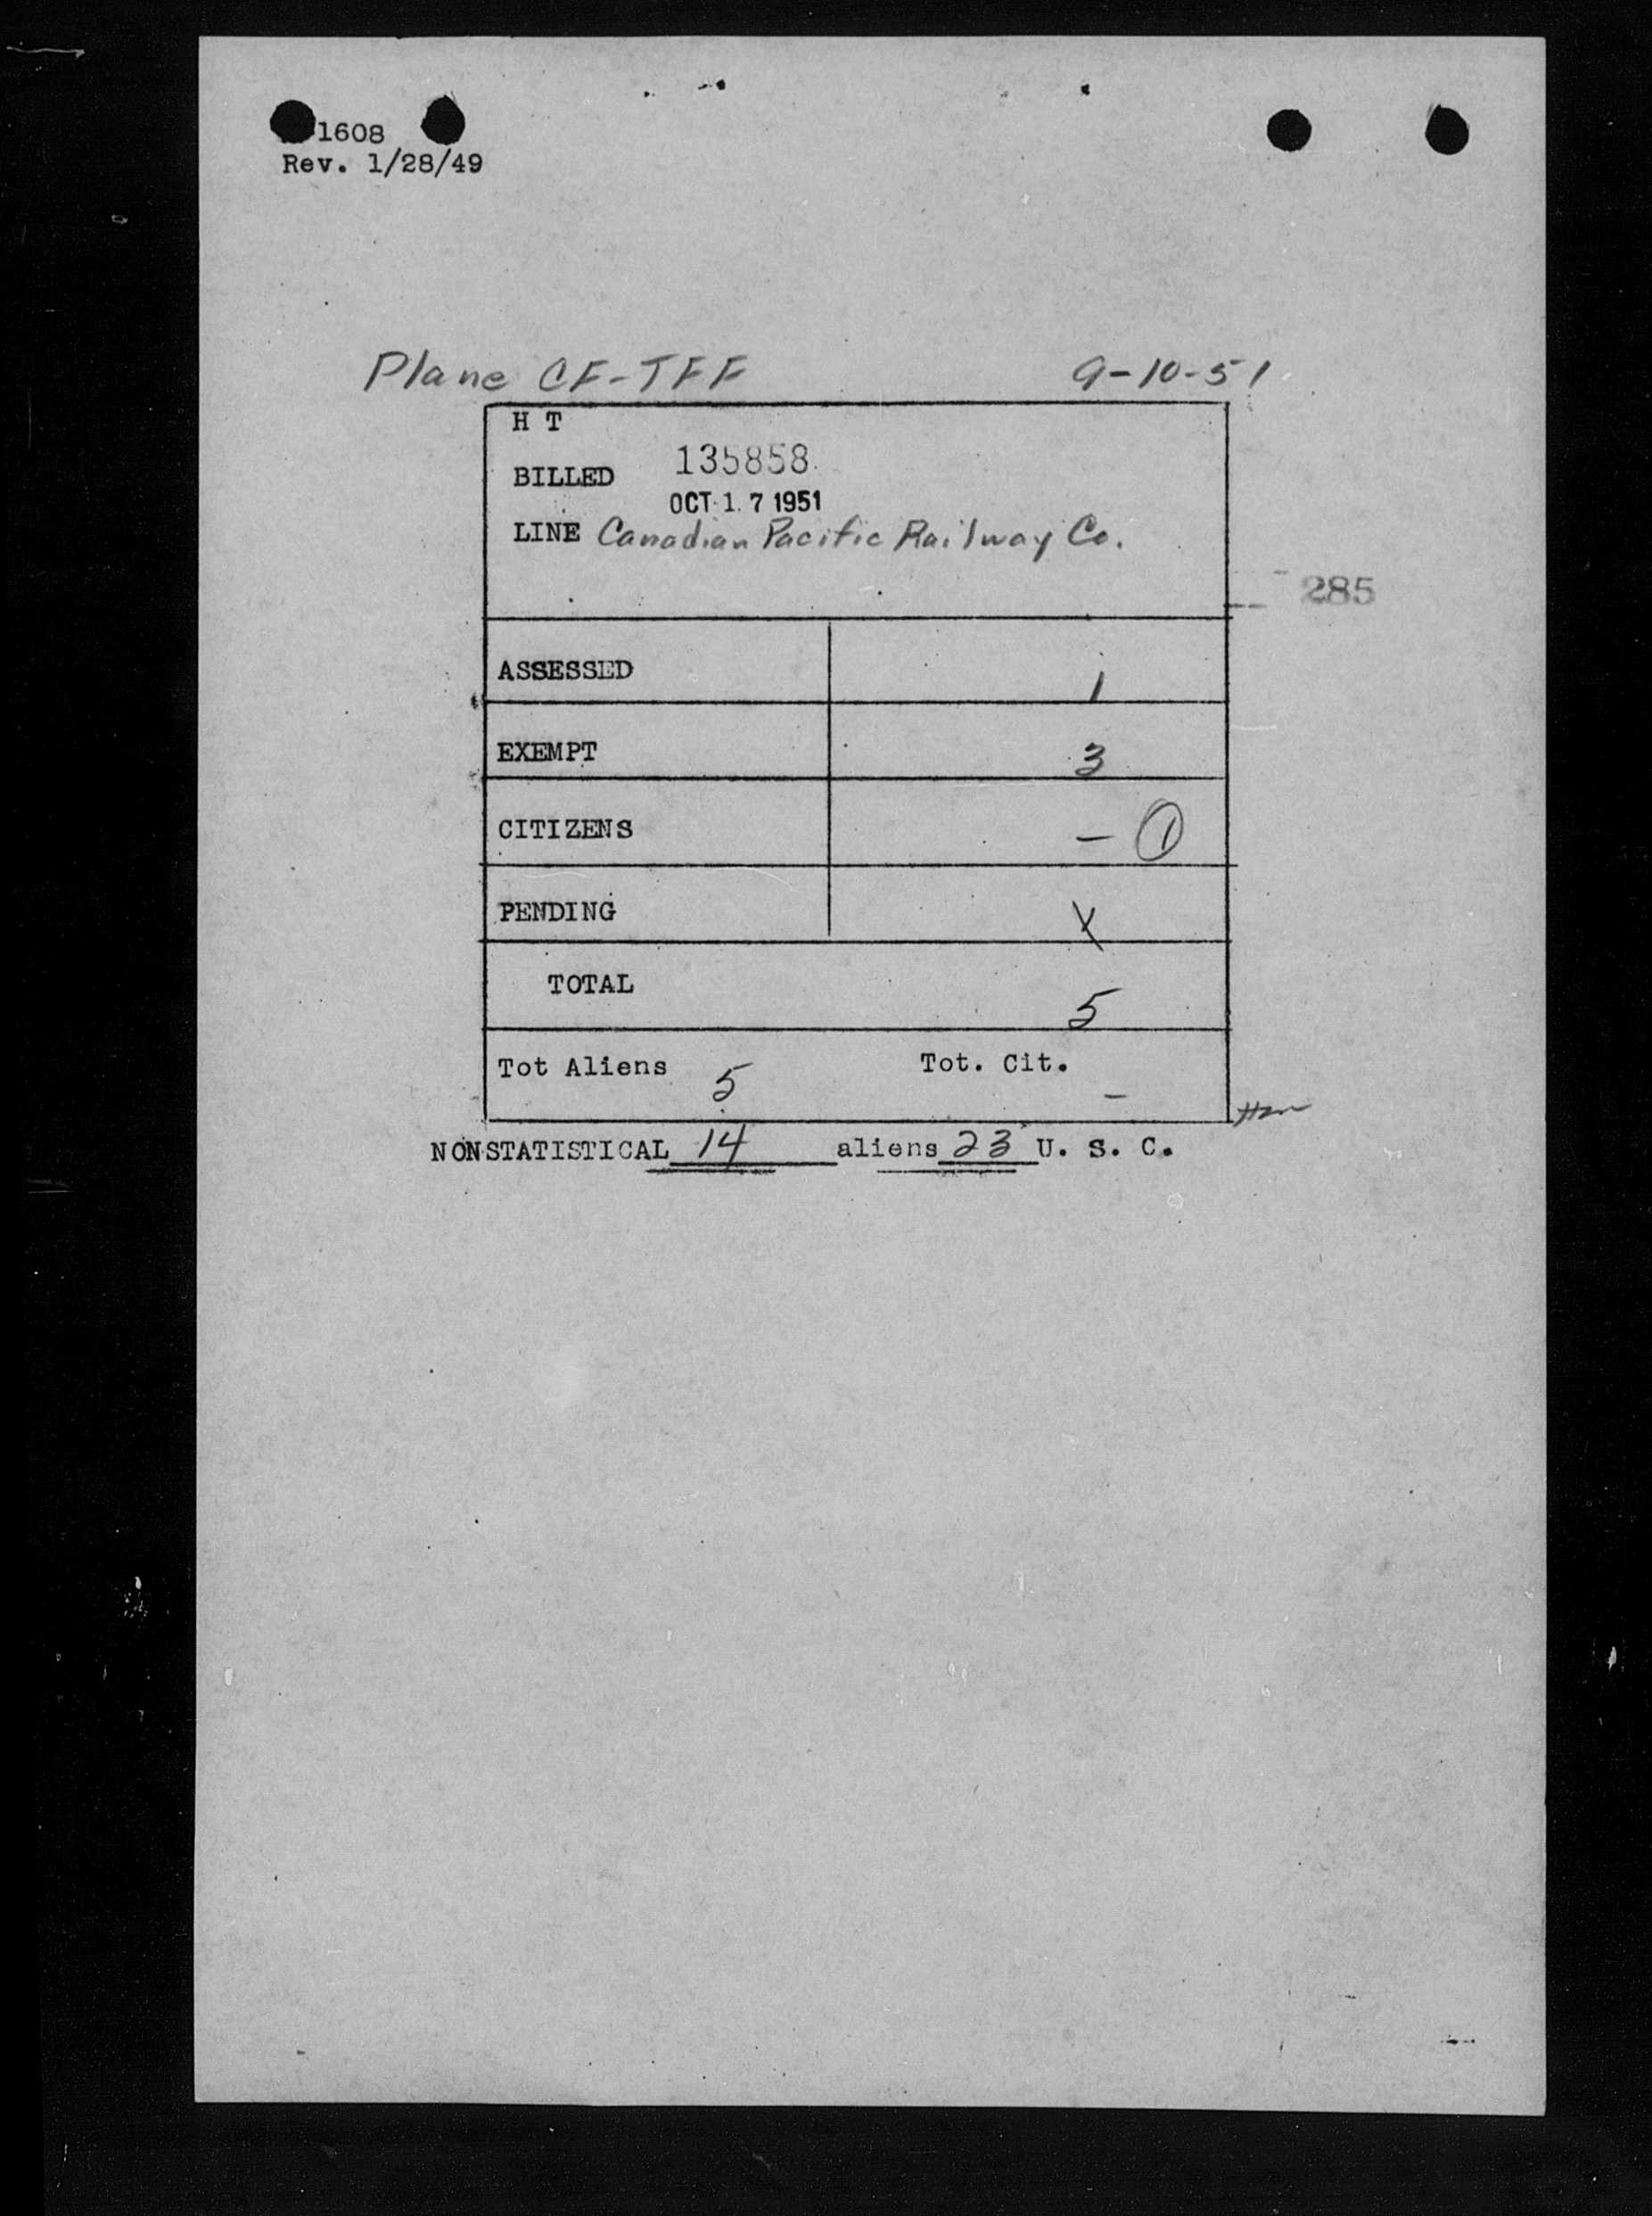 1608
Rev. 1/28/49
Plane CF-TFF 9-10-51
H T
135858
BILLED
OCT 17 1951
LINE Canadian Pacific Railway Co.
285
ASSESSED 1
EXEMPT 3
CITIZENS - 1
PENDING X
TOTAL 5
Tot Aliens 5 Tot. Cit. -
NONSTATISTICAL 14 aliens 23 U. S. C.